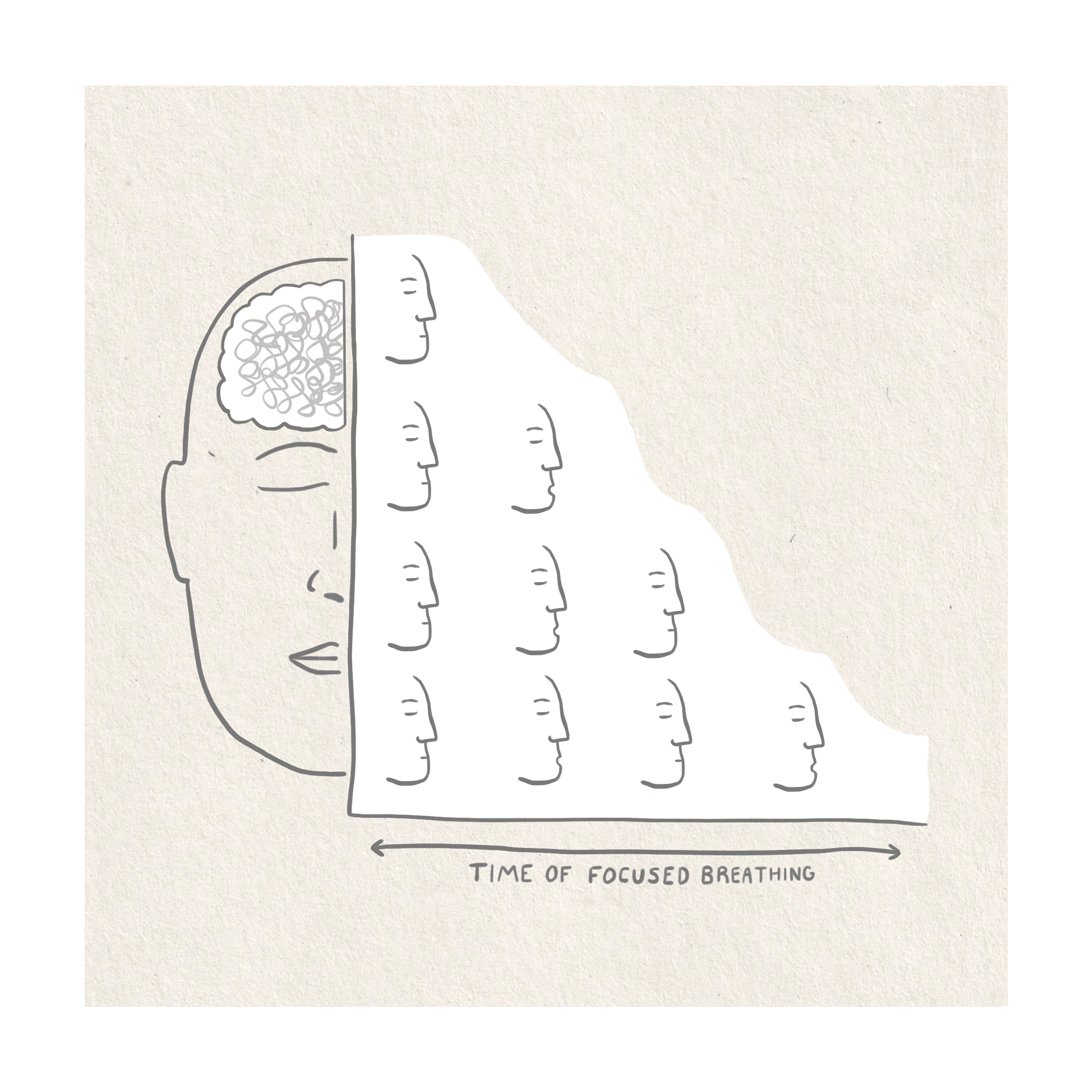 TIME OF FOCUSED BREATHING